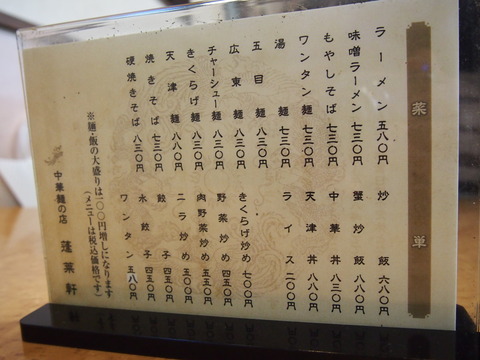 菜単
ラーメン 五八〇円
味噌ラーメン 七三〇円
もやしそば 七三〇円
ワンタン麺 七三〇円
湯麺 七三〇円
五目麺 八三〇円
広東麺 八三〇円
チャーシュー麺 八三〇円
きくらげ麺 八三〇円
天津麺 八八〇円
焼きそば 七三〇円
硬焼きそば 八三〇円
炒飯 六八〇円
蟹炒飯 八八〇円
中華丼 八三〇円
天津丼 八八〇円
ライス 二〇〇円
きくらげ炒め 七〇〇円
野菜炒め 四五〇円
肉野菜炒め 五五〇円
ニラ炒め 五〇〇円
餃子 四五〇円
水餃子 四五〇円
ワンタン 五八〇円
※麺・飯の大盛りは一〇〇円増しになります
(メニューは税込価格です)
中華麺の店 蓬莱軒